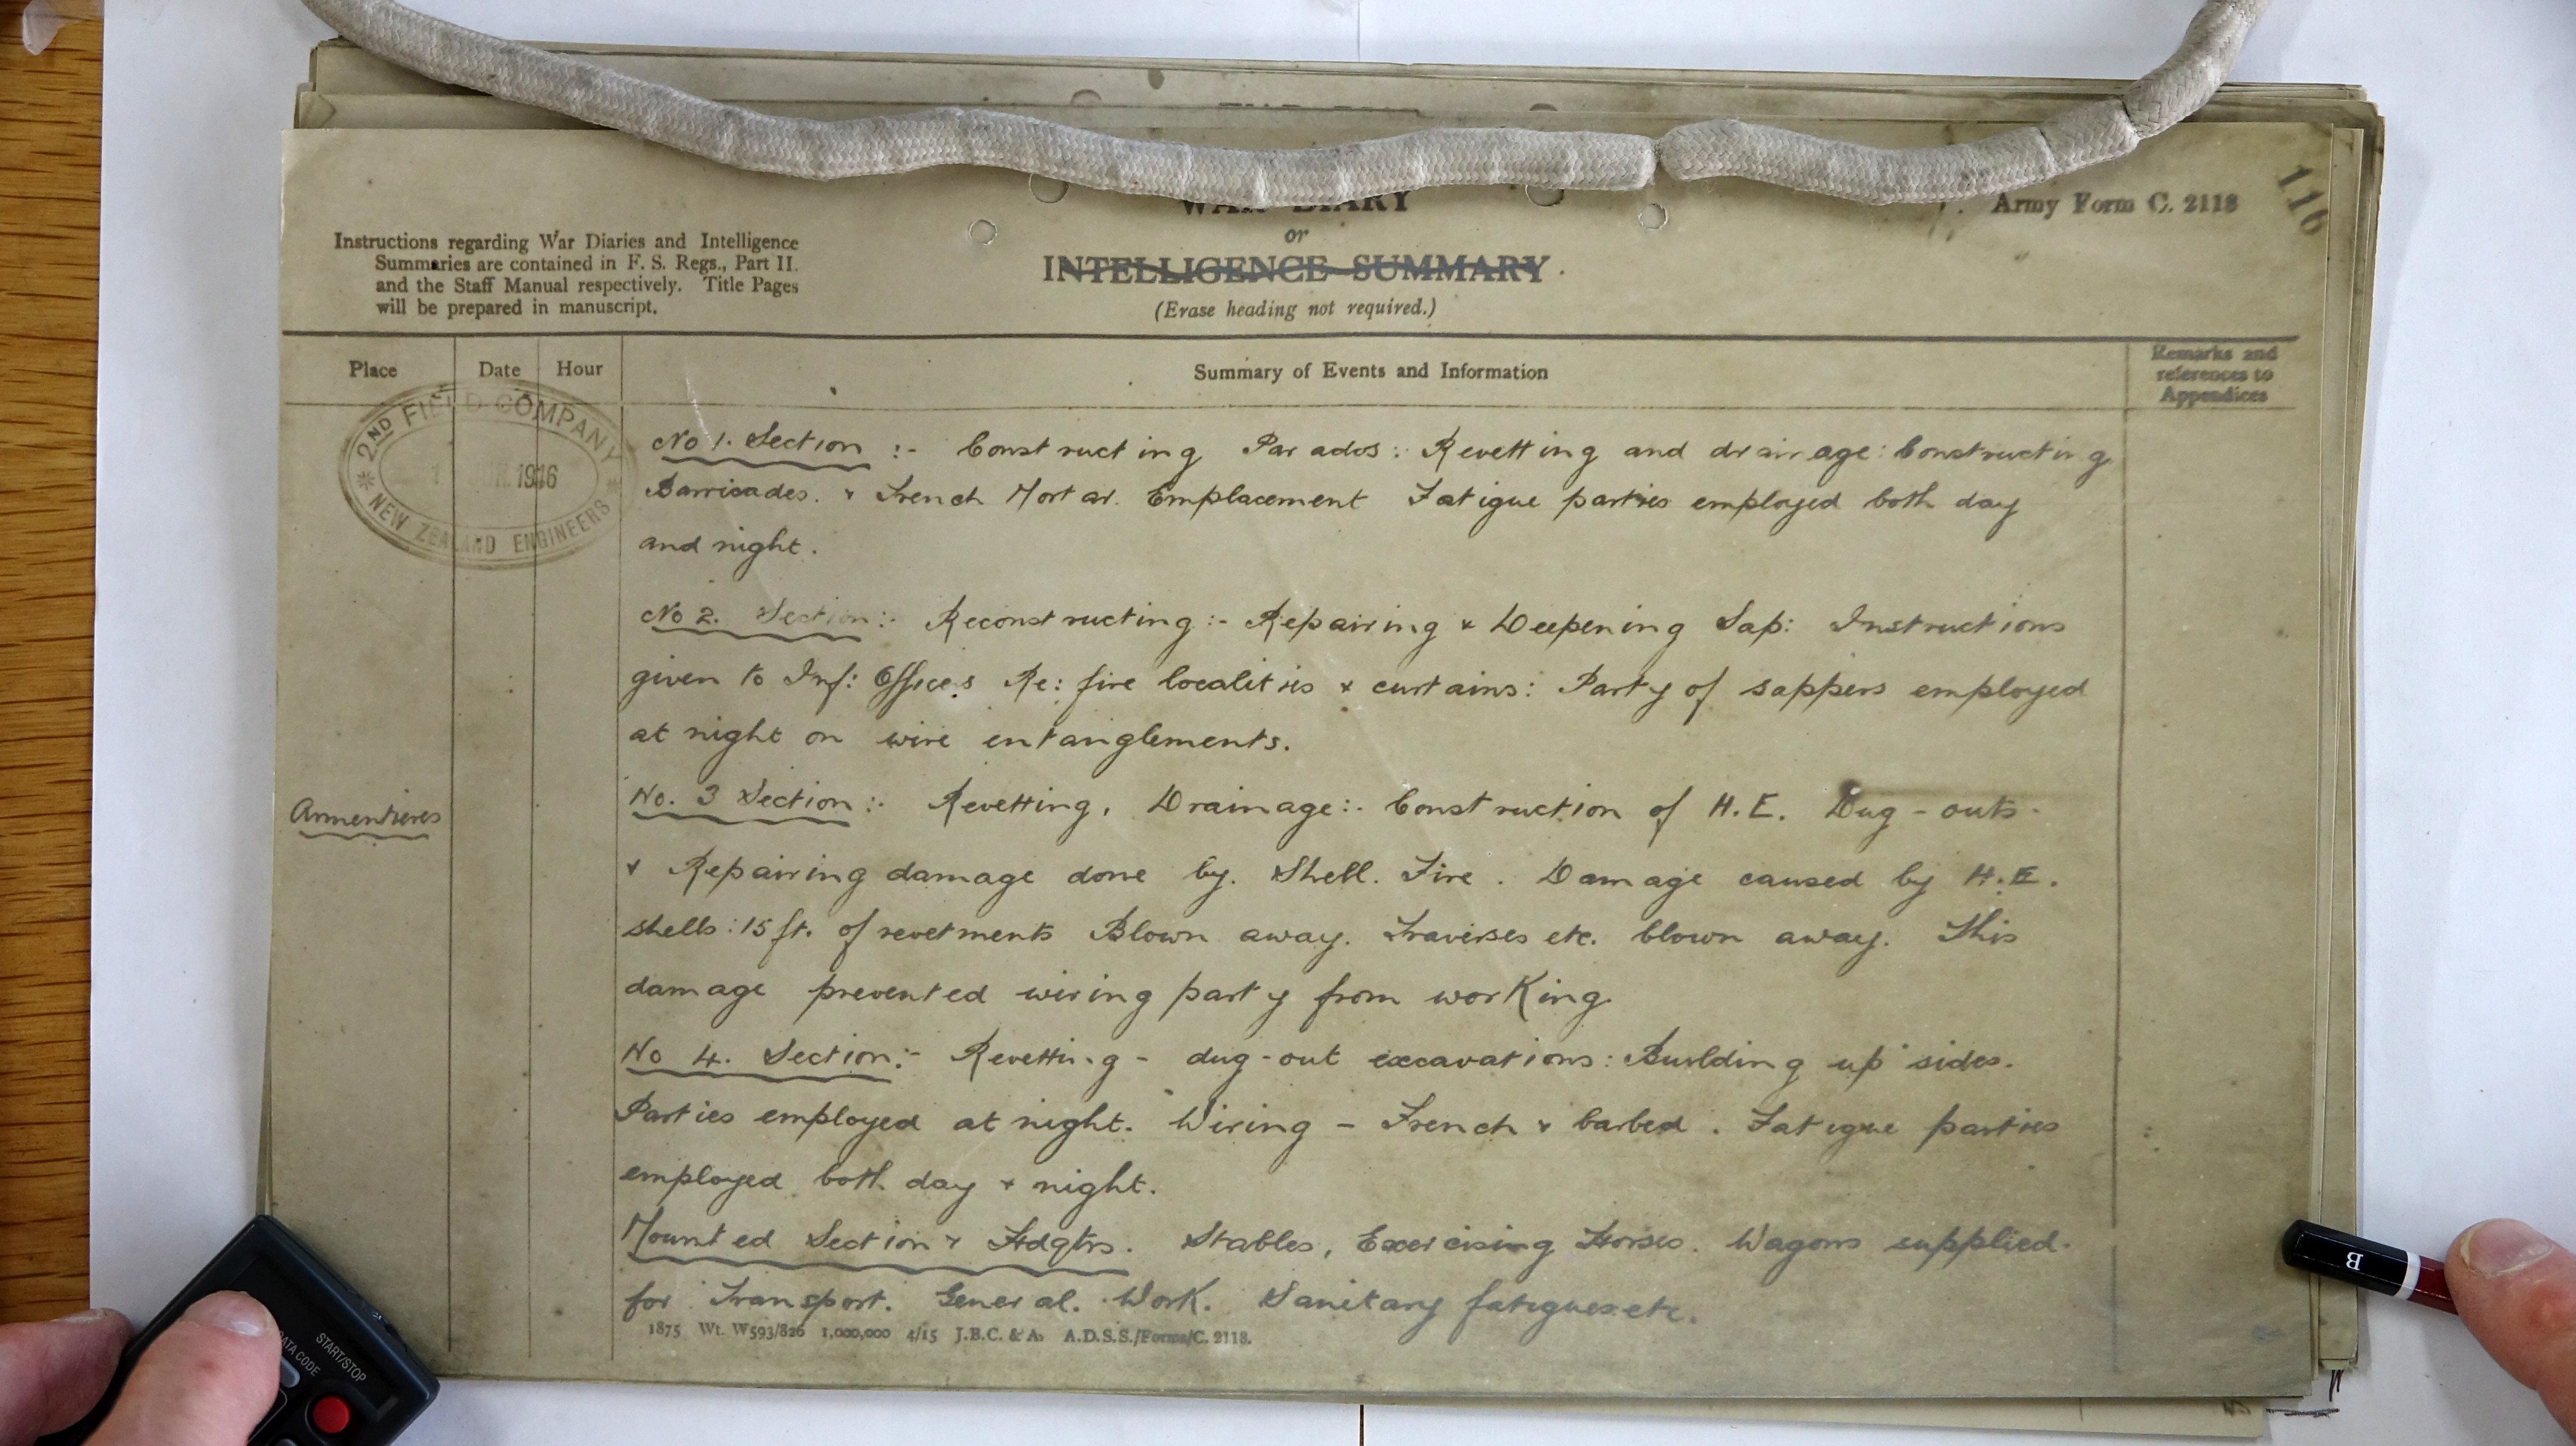 WAR DIARY
or
INTELLIGENCE SUMMARY.
(Erase heading not required.)
Army Form C. 2118
116
Instructions regarding War Diaries and Intelligence
Summaries are contained in F. S. Regs., Part II.
and the Staff Manual respectively. Title Pages
will be prepared in manuscript.
Place Date Hour Summary of Events and Information Remarks and
references to
Appendices
2ND FIELD COMPANY
1916
NEW ZEALAND ENGINEERS
No 1. Section :- Constructing Parados: Revetting and drainage: Constructing
Barricades. & Trench Mortar. Emplacement Fatigue parties employed both day
and night.
No 2. Section:- Reconstructing:- Repairing & Deepening Sap: Instructions
given to Inf: Officers Re: fire localities & curtains: Party of sappers employed
at night on wire entanglements.
Armentieres
No. 3 Section:- Revetting, Drainage:- Construction of H.E. Dug-outs-
& Repairing damage done by. Shell. Fire. Damage caused by H.E.
shells: 15 ft. of revetments Blown away. Traverses etc. blown away. This
damage prevented wiring party from working.
No 4. Section:- Revetting - dug-out excavations: Building up sides.
Parties employed at night. Wiring - French & barbed. Fatigue parties
employed both day & night.
Mounted Section & Hdqtrs. Stables, Exercising Horses. Wagons supplied.
for Transport. General. Work. Sanitary fatigues etc.
1875 Wt. W593/826 1,000,000 4/15 J.B.C. & A. A.D.S.S./Forms/C. 2118.
DATA CODE
START/STOP
B